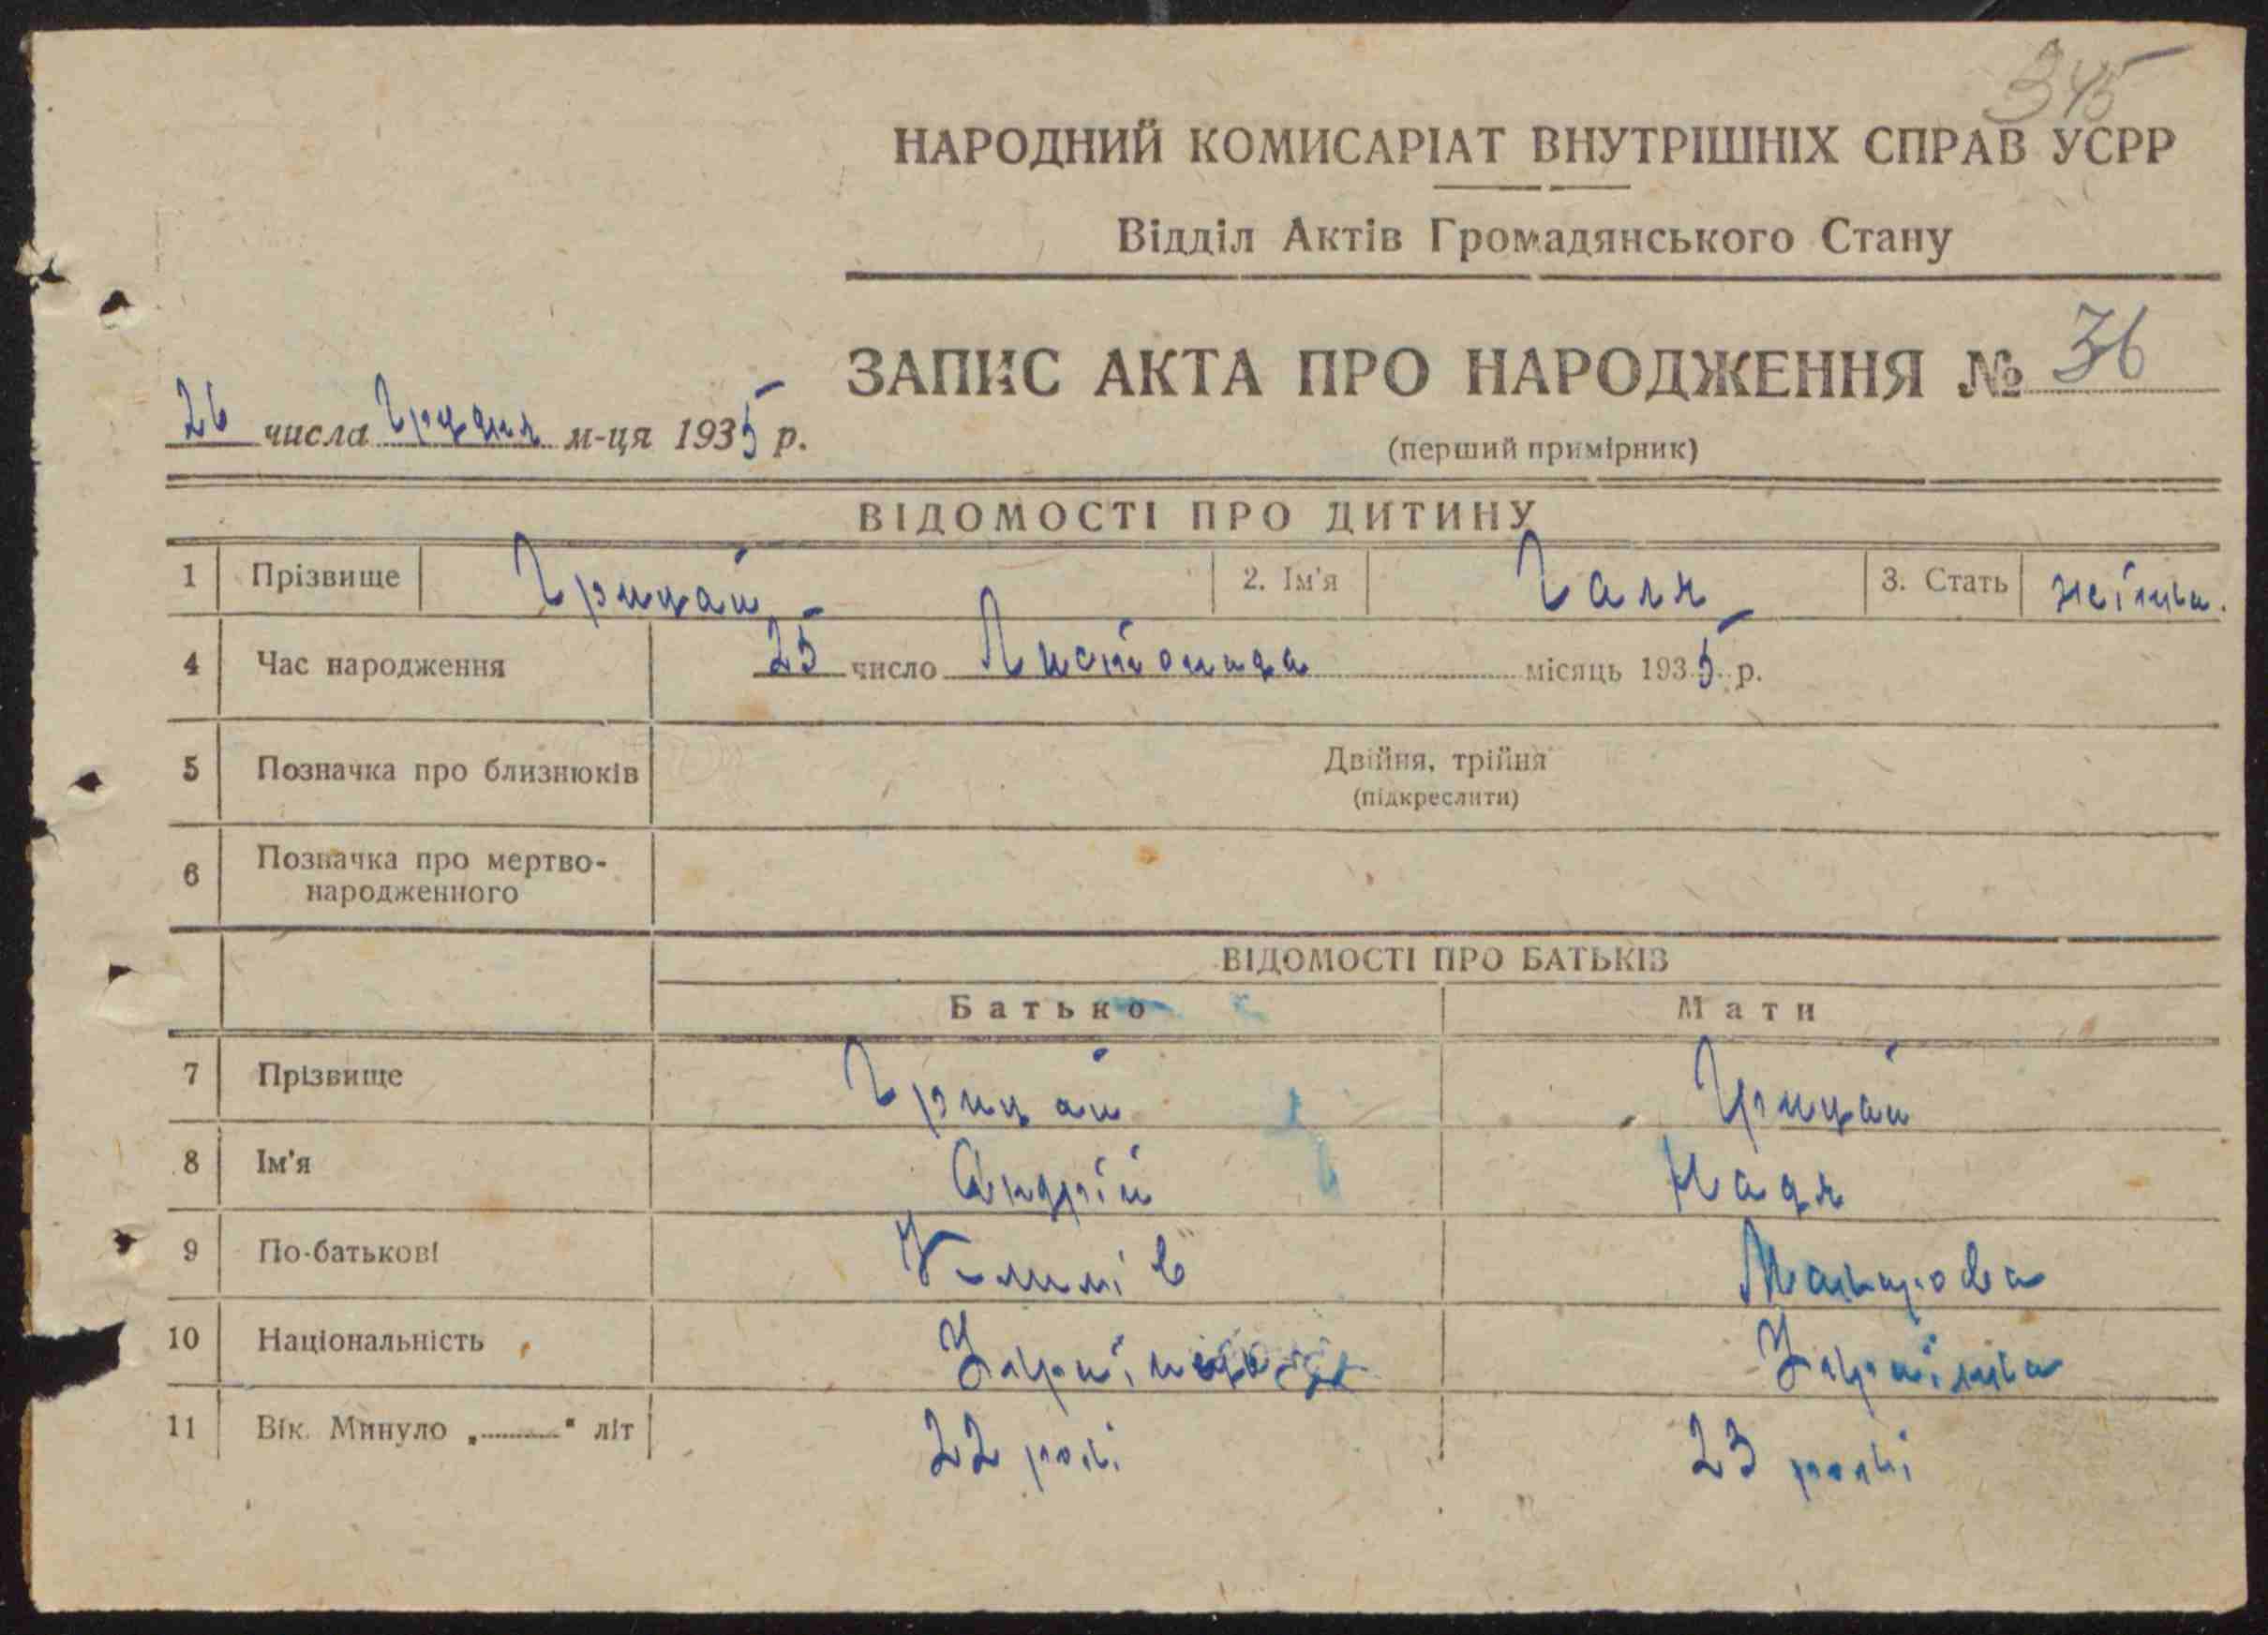 345
НАРОДНИЙ КОМИСАРІАТ ВНУТРІШНІХ СПРАВ УСРР
Відділ Актів Громадянського Стану
ЗАПИС АКТА ПРО НАРОДЖЕННЯ № 36
26 числа Грудня м-ця 1935 р.
(перший примірник)
ВІДОМОСТІ ПРО ДИТИНУ
1 Прізвище Грицай 2. Ім'я Галя 3. Стать жіноча.
4 Час народження 25 число Листопада місяць 1935 р.
5 Позначка про близнюків Двійня, трійня
(підкреслити)
6 Позначка про мертво-
народженного
ВІДОМОСТІ ПРО БАТЬКІВ
Батько Мати
7 Прізвище Грицай Грицай
8 Ім'я Андрій Надя
9 По-батькові
10 Національність
11 Вік. Минуло „ “ літ 22 роки 23 роки